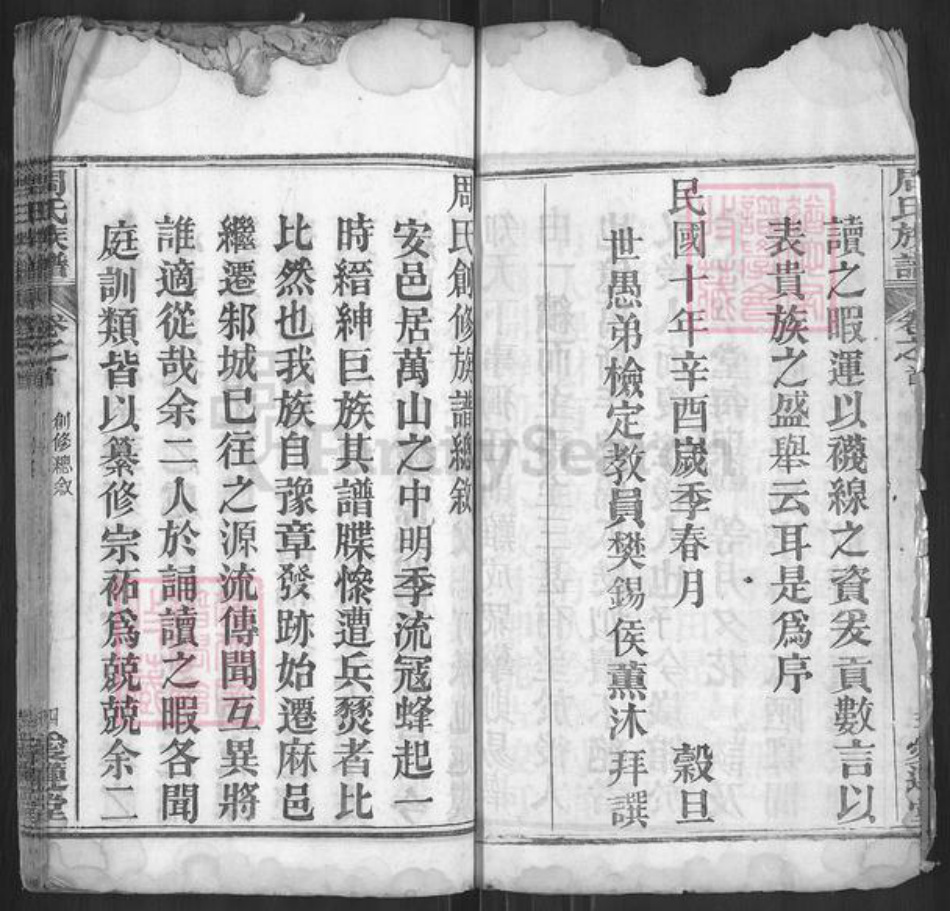 讀之暇運以襪線之資爰貢數言以
表貴族之盛舉云耳是為序
民國十年辛酉歲季春月 穀旦
世愚弟檢定教員樊錫侯薰沐拜譔
周氏創修族譜總敘
安邑居萬山之中明季流寇蜂起一
時縉紳巨族其譜牒慘遭兵燹者比
比然也我族自豫章發跡始遷麻邑
繼遷邾城已往之源流傳聞互異將
誰適從哉余二人於誦讀之暇各聞
庭訓類皆以纂修宗祏為兢兢余二
周氏族譜 卷之首 創修總敘 四 愛蓮堂
FamilySearch